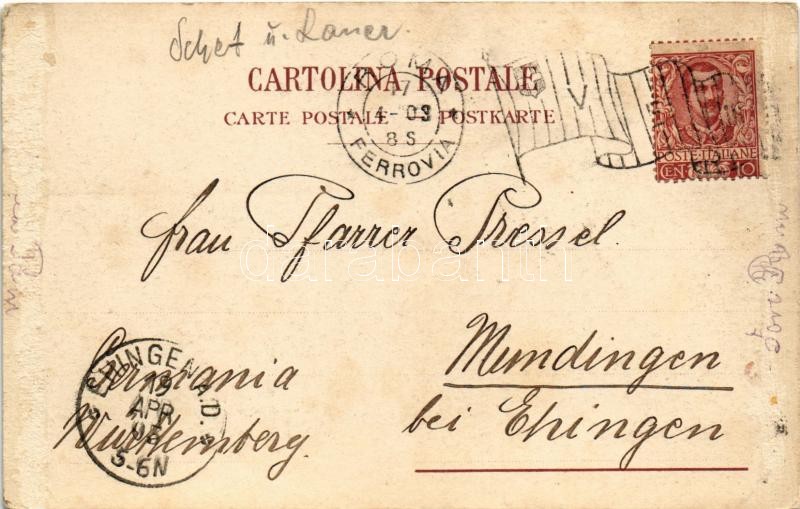 ROMA
17
4-03
8S
FERROVIA
CARTOLINA POSTALE
CARTE POSTALE POSTKARTE
POSTE ITALIANE
CENT. 10
Frau Pfarrer Pressel.
darabanth
Mundingen
bei Ehingen
Germania
Württemberg.
EHINGEN A.D.
19
APR
03
5-6N